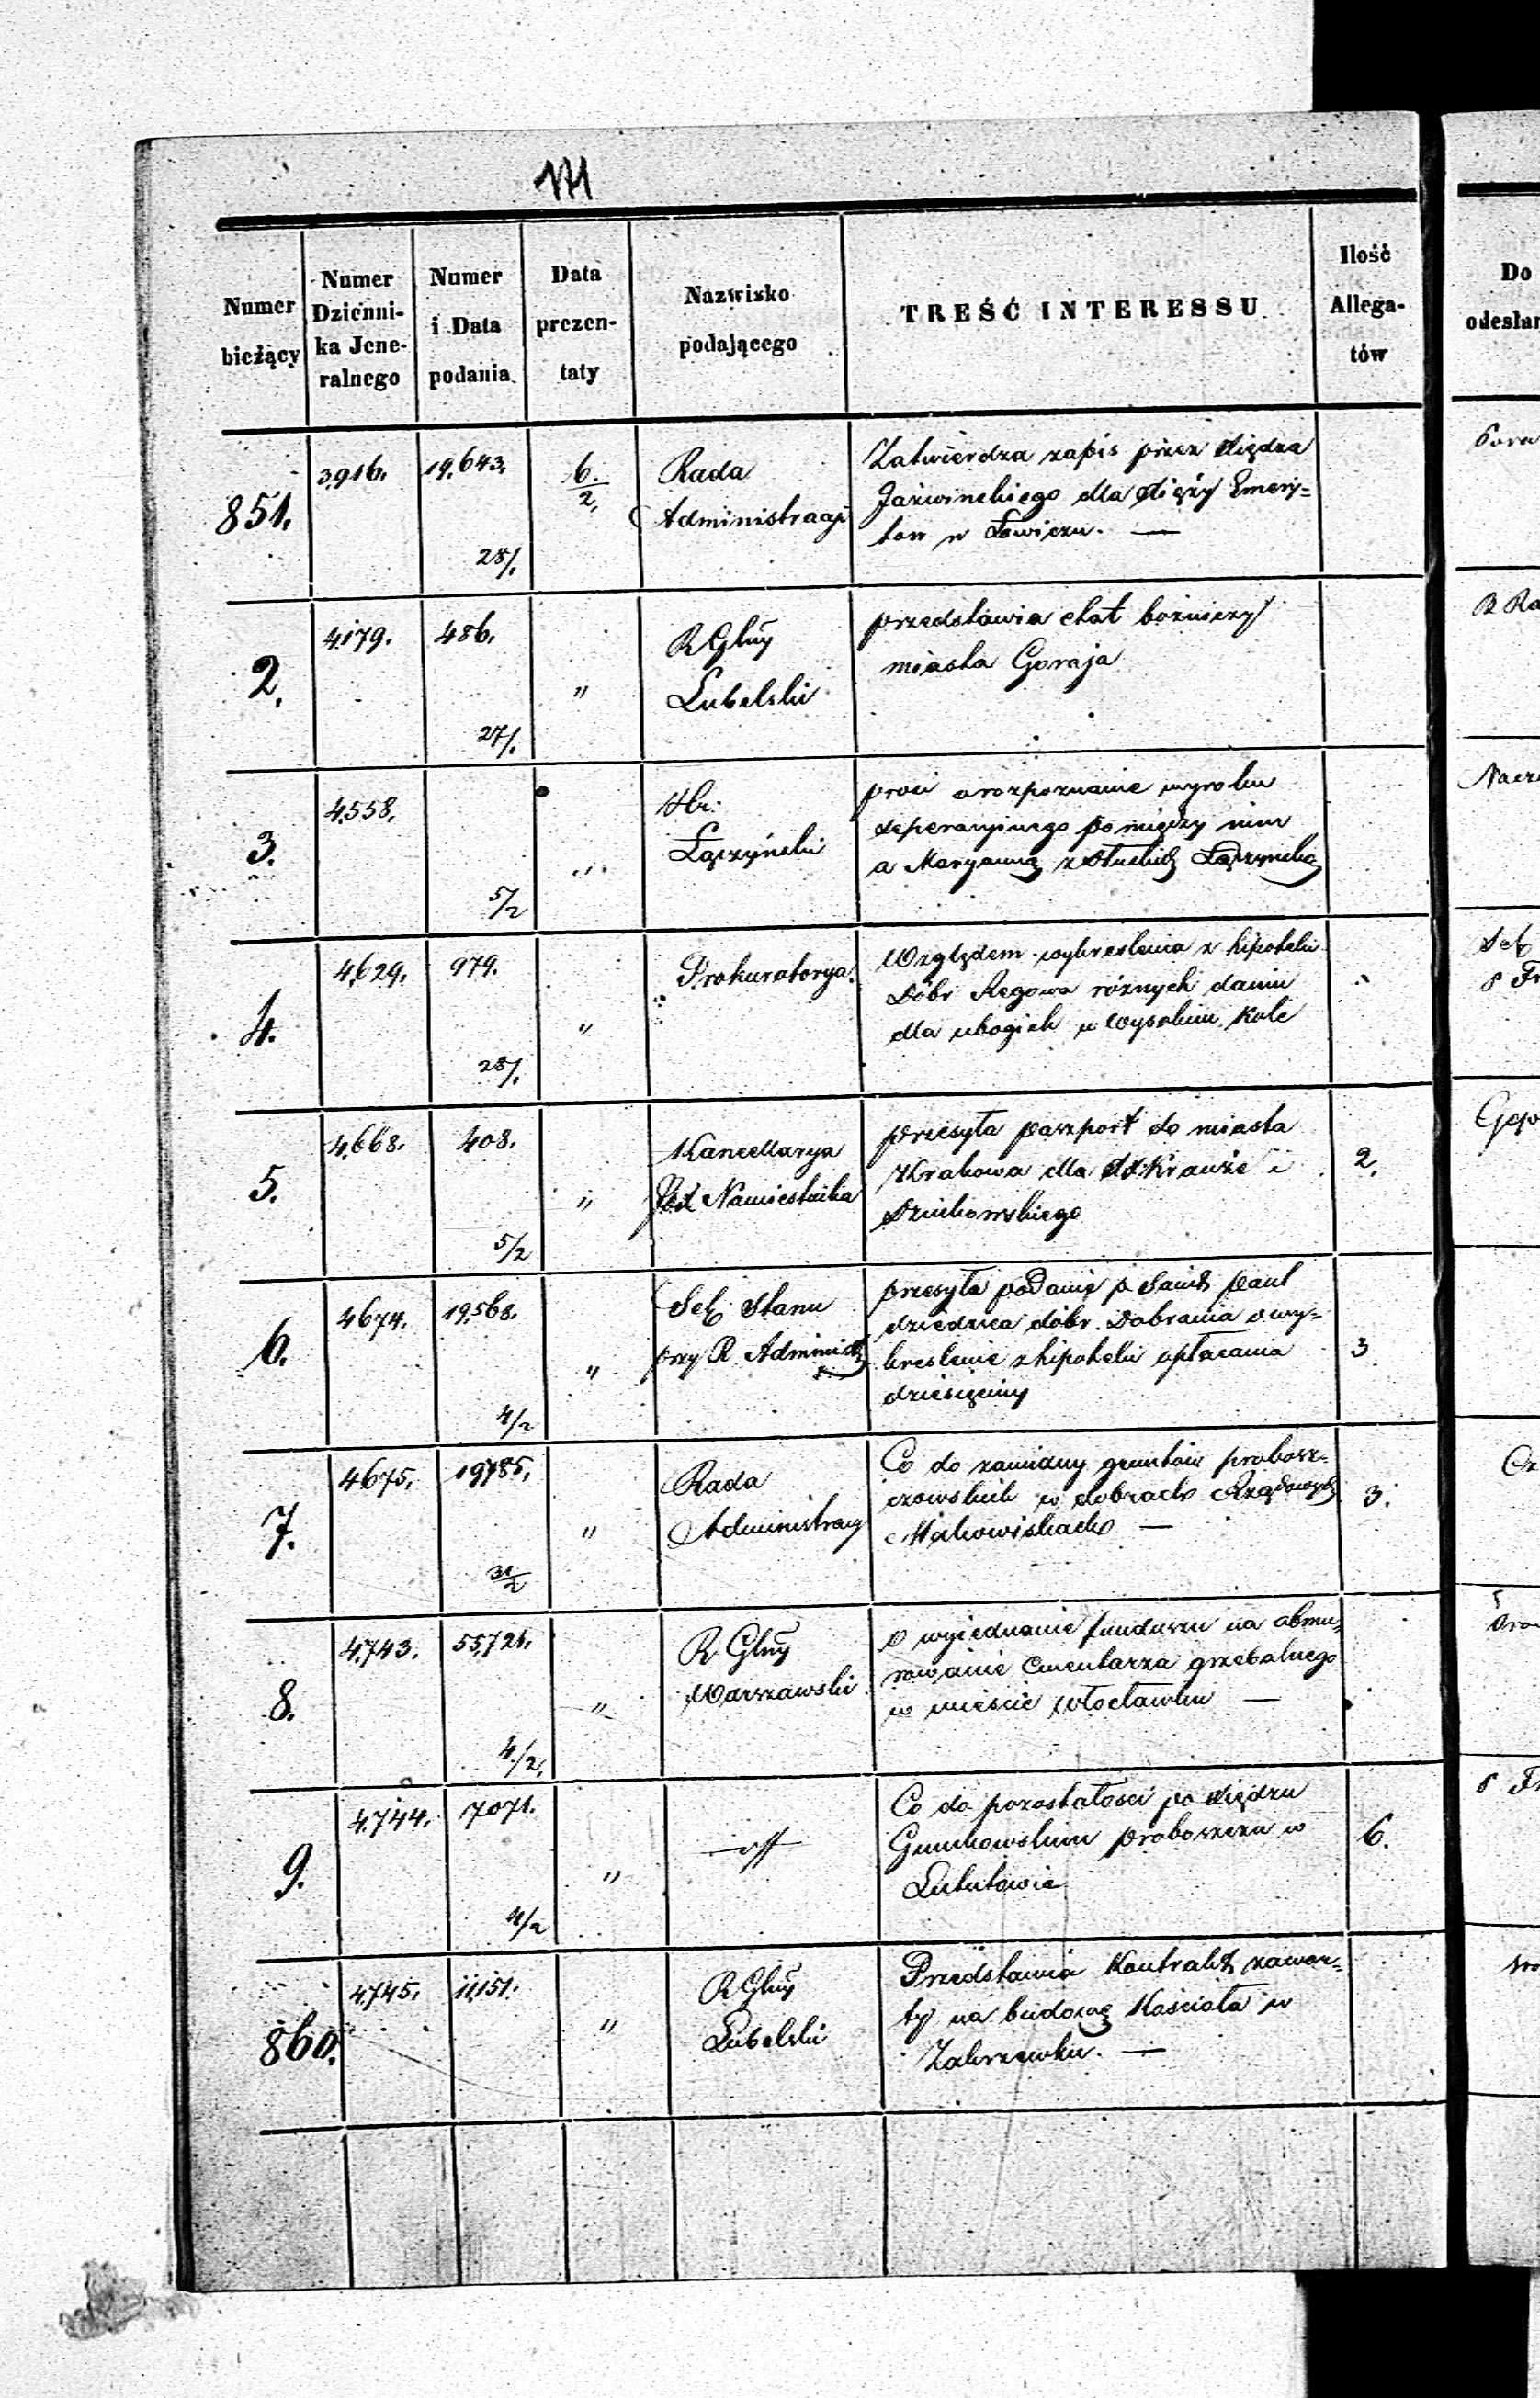 171
Numer bieżący | Numer Dzienni-ka Jene-ralnego | Numer i Data podania | Data prezen-taty | Nazwisko podającego | TREŚĆ INTERESSU | Ilość Allega-tów | Do
851. | 3,916. | 19,643. 28/1 | 6./2. | Rada
Administracyj | Zatwierdza zapis przez Xiędza
dla Xięży Emery=
tów w Łowiczu. —
2. | 4,179. | 486. 27/1 | " | R Glny
Lubelski | przedstawia etat bożniczy
miasta Goraja
3. | 4,558. | 5/2 | " | Hr:
Łączyński | prosi o rozpoznanie wyroku
separacyjnego pomiędzy nim
a Maryanną Łączyńską
4. | 4,629. | 979. 28/1 | " | Prokuratorya | Względem wykreslenia z hipoteki
Dóbr Regowa różnych danin
dla ubogich w Wysokim Kole
5. | 4,668. | 408. 5/2 | " | Kancellarya
Namiestnika | przesyła paszport do miasta
Krakowa dla XX Krauze i
| 2.
6. | 4674. | 19,568. 4/2 | " | Sek. Stanu
przy R. Administ | przesyła podanie p Saint Paul
dziedzica dóbr o wy=
kreslenie z hipoteki opłacania
dziesięciny | 3
7. | 4675. | 19785. 31/2 | " | Rada
Administracyj | Co do zamiany gruntów probosz=
czowskich w dobrach Rządowych
Makowiskach — | 3.
8. | 4,743. | 55,721. 4/2. | " | R Glny
Warszawski | o wyjednanie funduszu na obmu=
rowanie Cmentarza grzebalnego
w mieście Włocławku —
9. | 4,744. | 7071. 4/2 | " | Co do pozostałosci po Xiędzu
proboszczu w
Lututowie | 6.
860. | 4,745. | 11,151. | " | R Glny
Lubelski | Przedstawia Kontrakt zawar=
ty na budowę Kościoła w
Zakrzewku. —